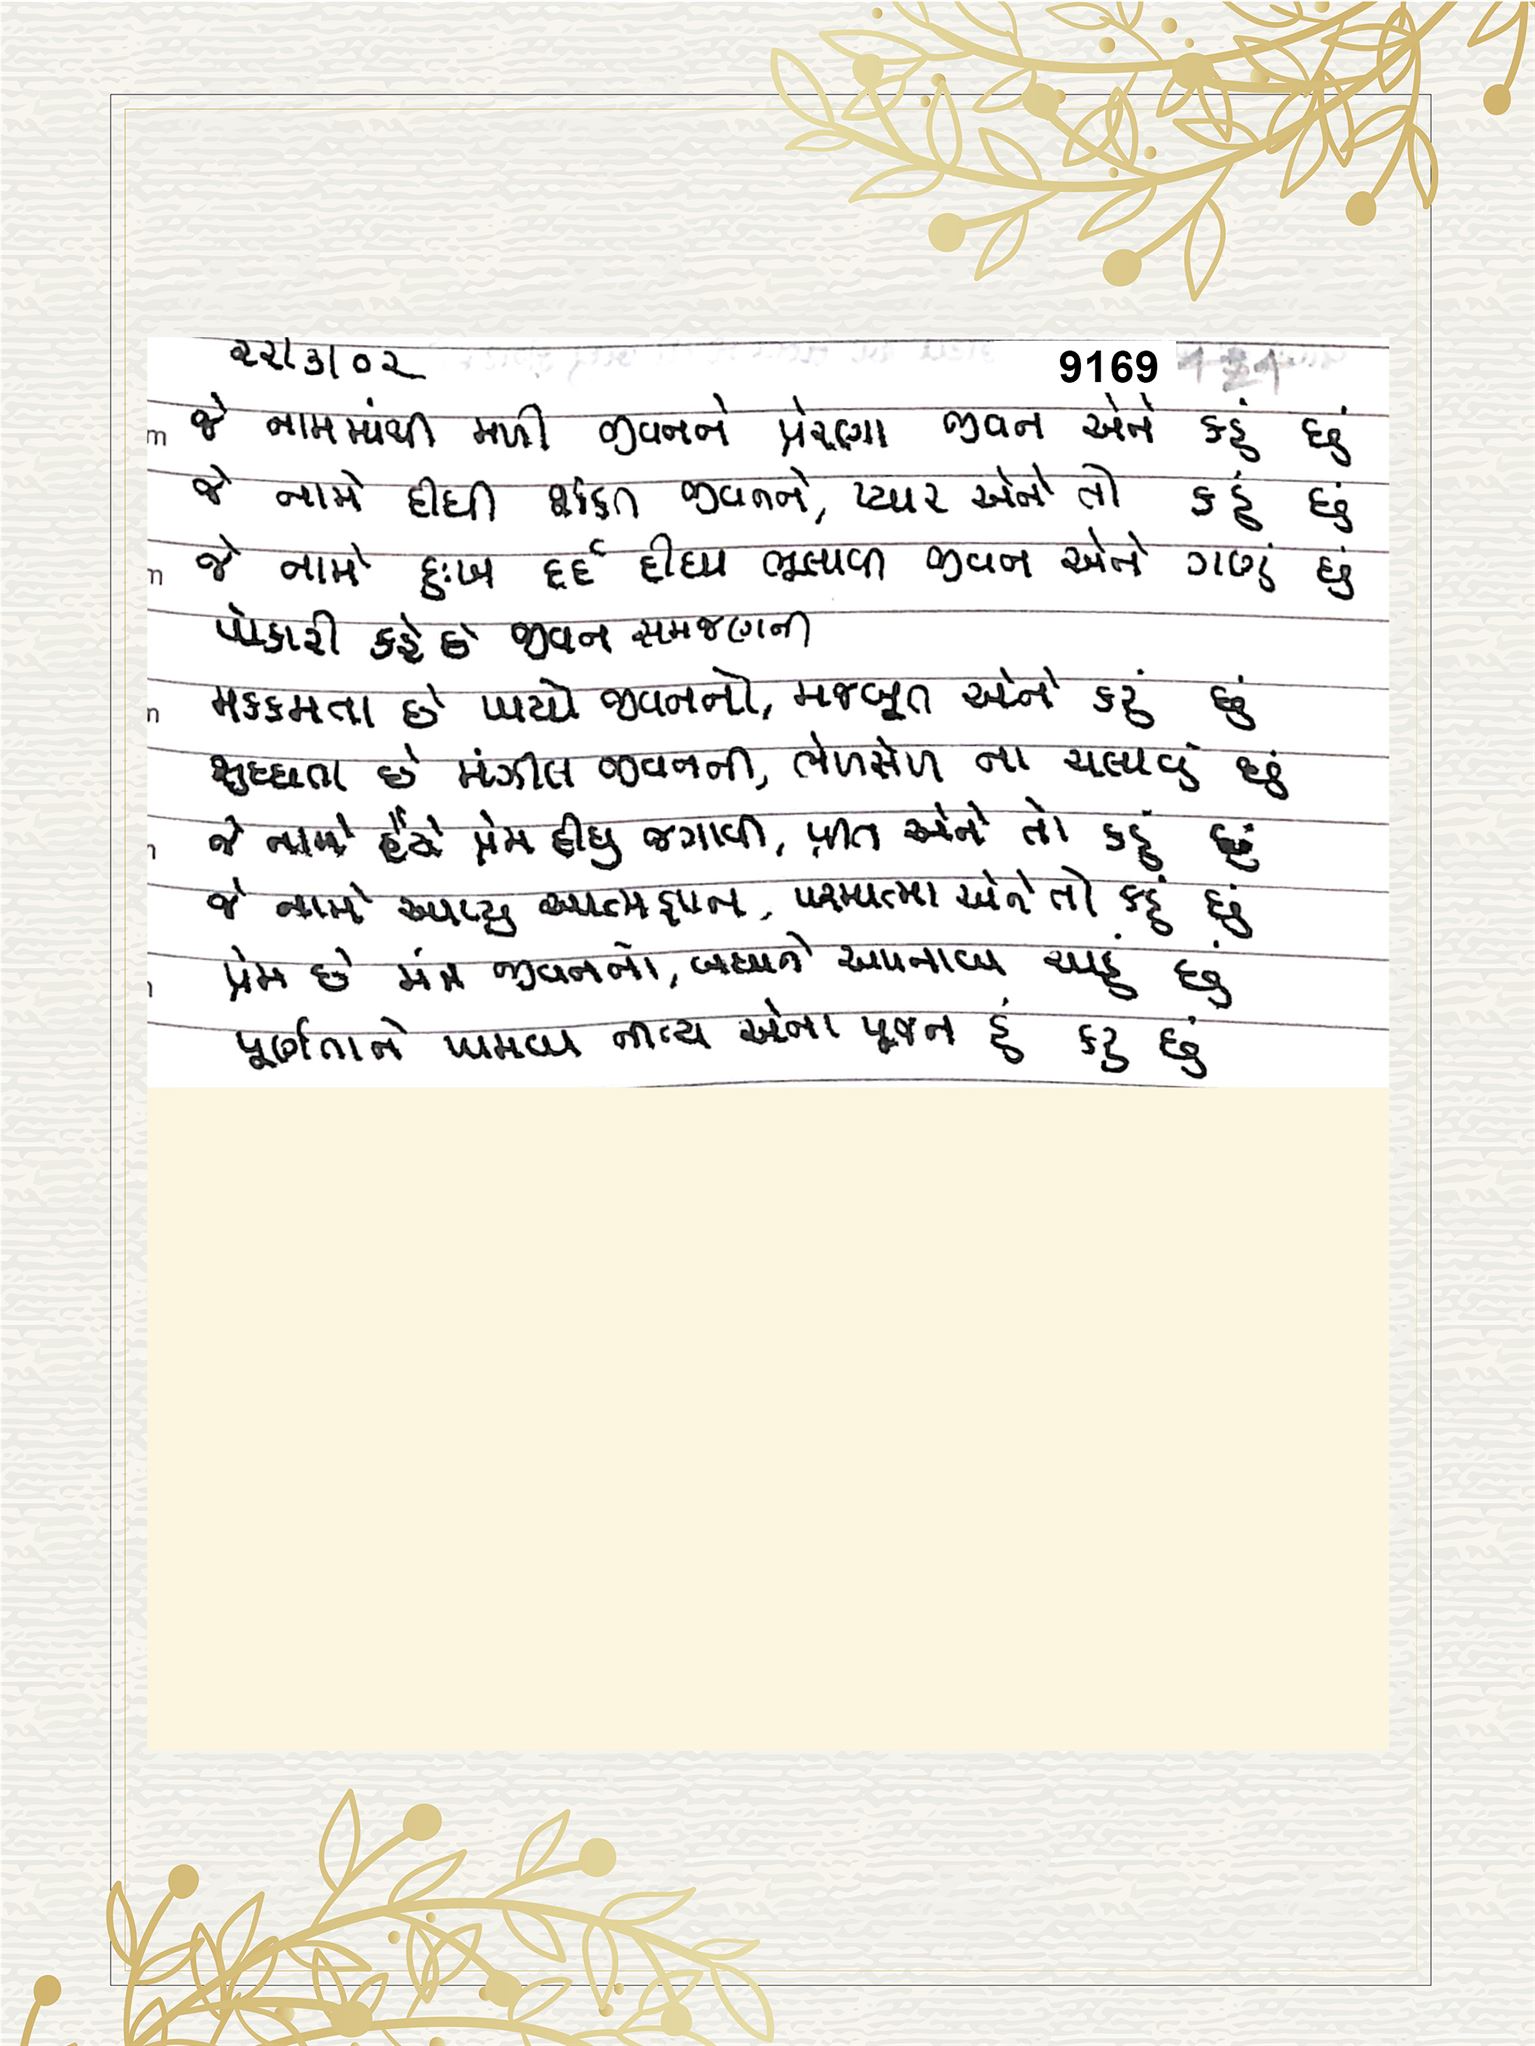 ૨૨/૩/૦૨
9169
જે નામમાંથી મળી જીવનને પ્રેરણા જીવન એને કહું છું
જે નામે દીધી શક્તિ જીવનને, પ્યાર એને તો કહું છું
જે નામે દુઃખ દર્દ દીધા ભૂલાવી જીવન એને ગણું છું
પોકારી કહે છે જીવન સમજણની
મક્કમતા છે પાયો જીવનનો, મજબૂત એને કરું છું
શુધ્ધતા છે મંઝીલ જીવનની, ભેળસેળ ના ચલાવું છું
જે નામે હૈયે પ્રેમ દીધુ જગાવી, પ્રીત એને તો કહું છું
જે નામે આપ્યુ આત્મજ્ઞાન, પરમાત્મા એને તો કહું છું
પ્રેમ છે મંત્ર જીવનનો, બધાને અપનાવવા ચાહું છું
પૂર્ણતાને પામવા નીત્ય એના પૂજન હું કરુ છું